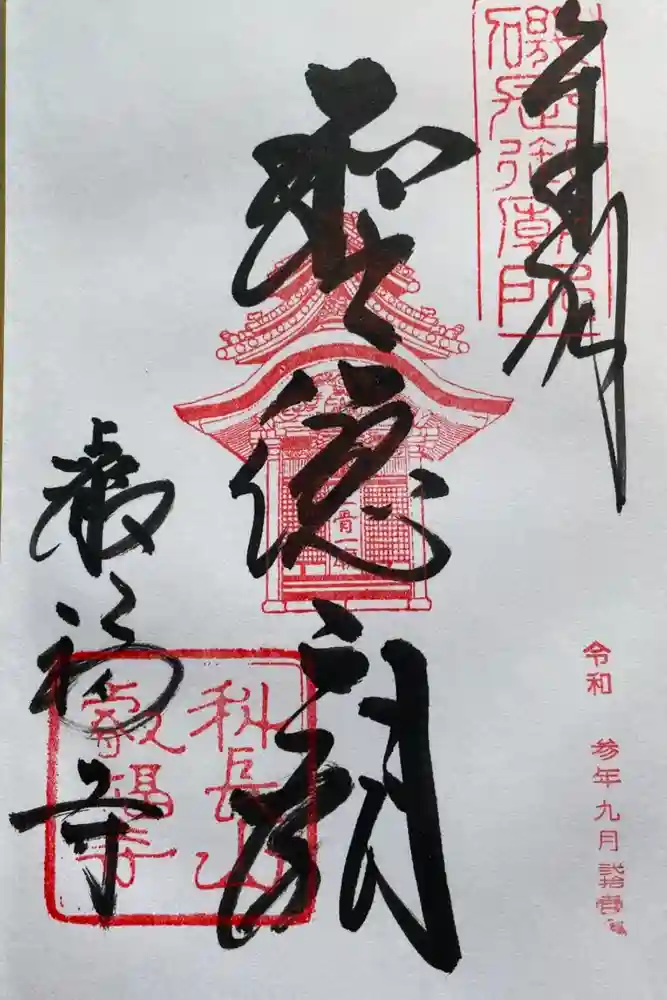 奉拝
聖徳廟
叡福寺
科長山
叡福寺
令和 参年九月弐拾壱日